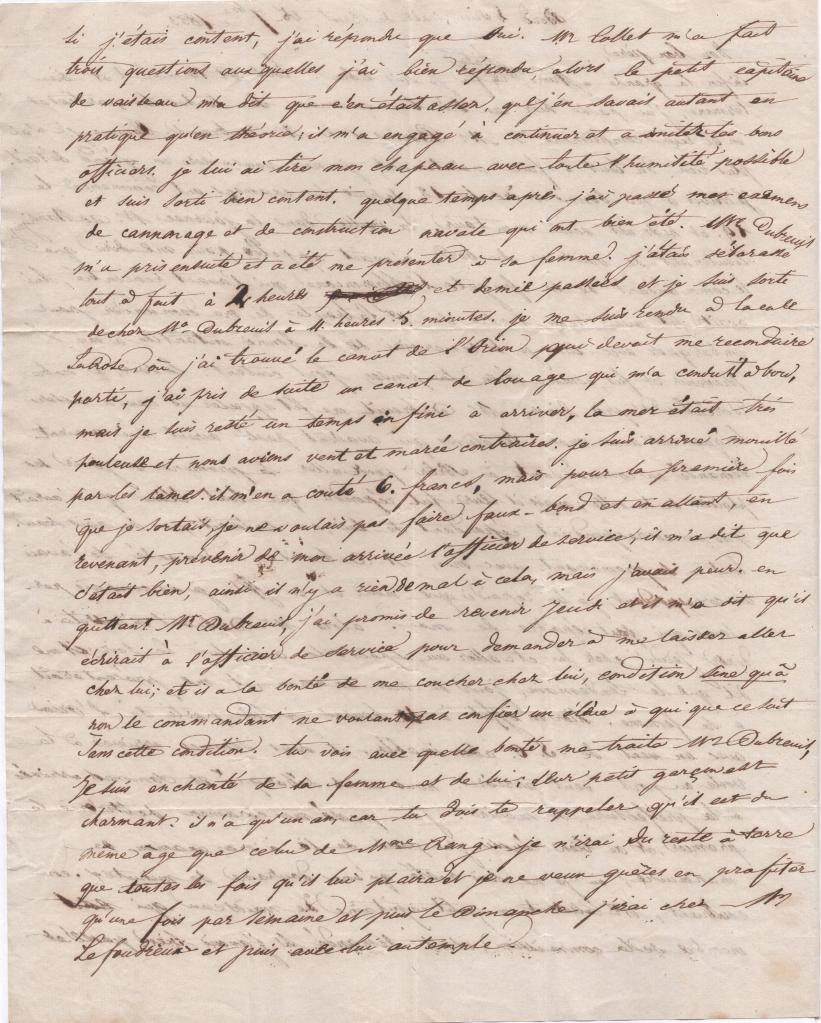 si j'étais content, j'ai répondu que oui. Mr Collet m'a fait
trois questions auxquelles j'ai bien répondu, alors le petit capitaine
de vaisseau m'a dit que c'en était assez, que j'en savais autant en
pratique qu'en théorie; il m'a engagé à continuer et a imiter les bons
officiers. je lui ai tiré mon chapeau avec toute l'humilité possible
et suis sorti bien content. quelque temps après j'ai passé mes examens
de cannonage et de construction navale qui ont bien été. Mr Dubreuil
m'a pris ensuite et a été me présenter à sa femme. j'étais débarassé
tout à fait à 2 heures et demie passées et je suis sorti
de chez Mr Dubreuil à 4 heures 5 minutes. je me suis rendu à la calle
La Rose, où j'ai trouvé le canot de l'Orion qui devait me reconduire
parti, j'ai pris de suite un canot de louage qui m'a conduit à bord,
mais je suis resté un temps infini à arriver, la mer était très
houleuse et nous avions vent et marée contraires. je suis arrivé mouillé
par les lames. il m'en a couté 6. francs, mais pour la première fois
que je sortais, je ne voulais pas faire faux-bond et en allant, en
revenant, prévenir de mon arrivée l'officier de service, il m'a dit que
c'était bien, ainsi il n'y a rien de mal à cela, mais j'avais peur. en
quittant Mr Dubreuil, j'ai promis de revenir Jeudi et il m'a dit qu'il
écrirait à l'officier de service pour demander à me laisser aller
chez lui; et il a la bonté de me coucher chez lui, condition sine quâ
non le commandant ne voulant pas confier un élève à qui que ce soit
sans cette condition. tu vois avec quelle bonté me traite Mr Dubreuil,
Je suis enchanté de sa femme et de lui; leur petit garçon est
charmant. il n'a qu'un an, car tu dois te rappeler qu'il est du
même âge que celui de Mme Rang. je n'irai du reste à terre
que toutes les fois qu'il lui plaira et je ne veux guères en profiter
qu'une fois par semaine et puis le Dimanche j'irai chez Mr
Lefoudreux et puis avec lui au temple.